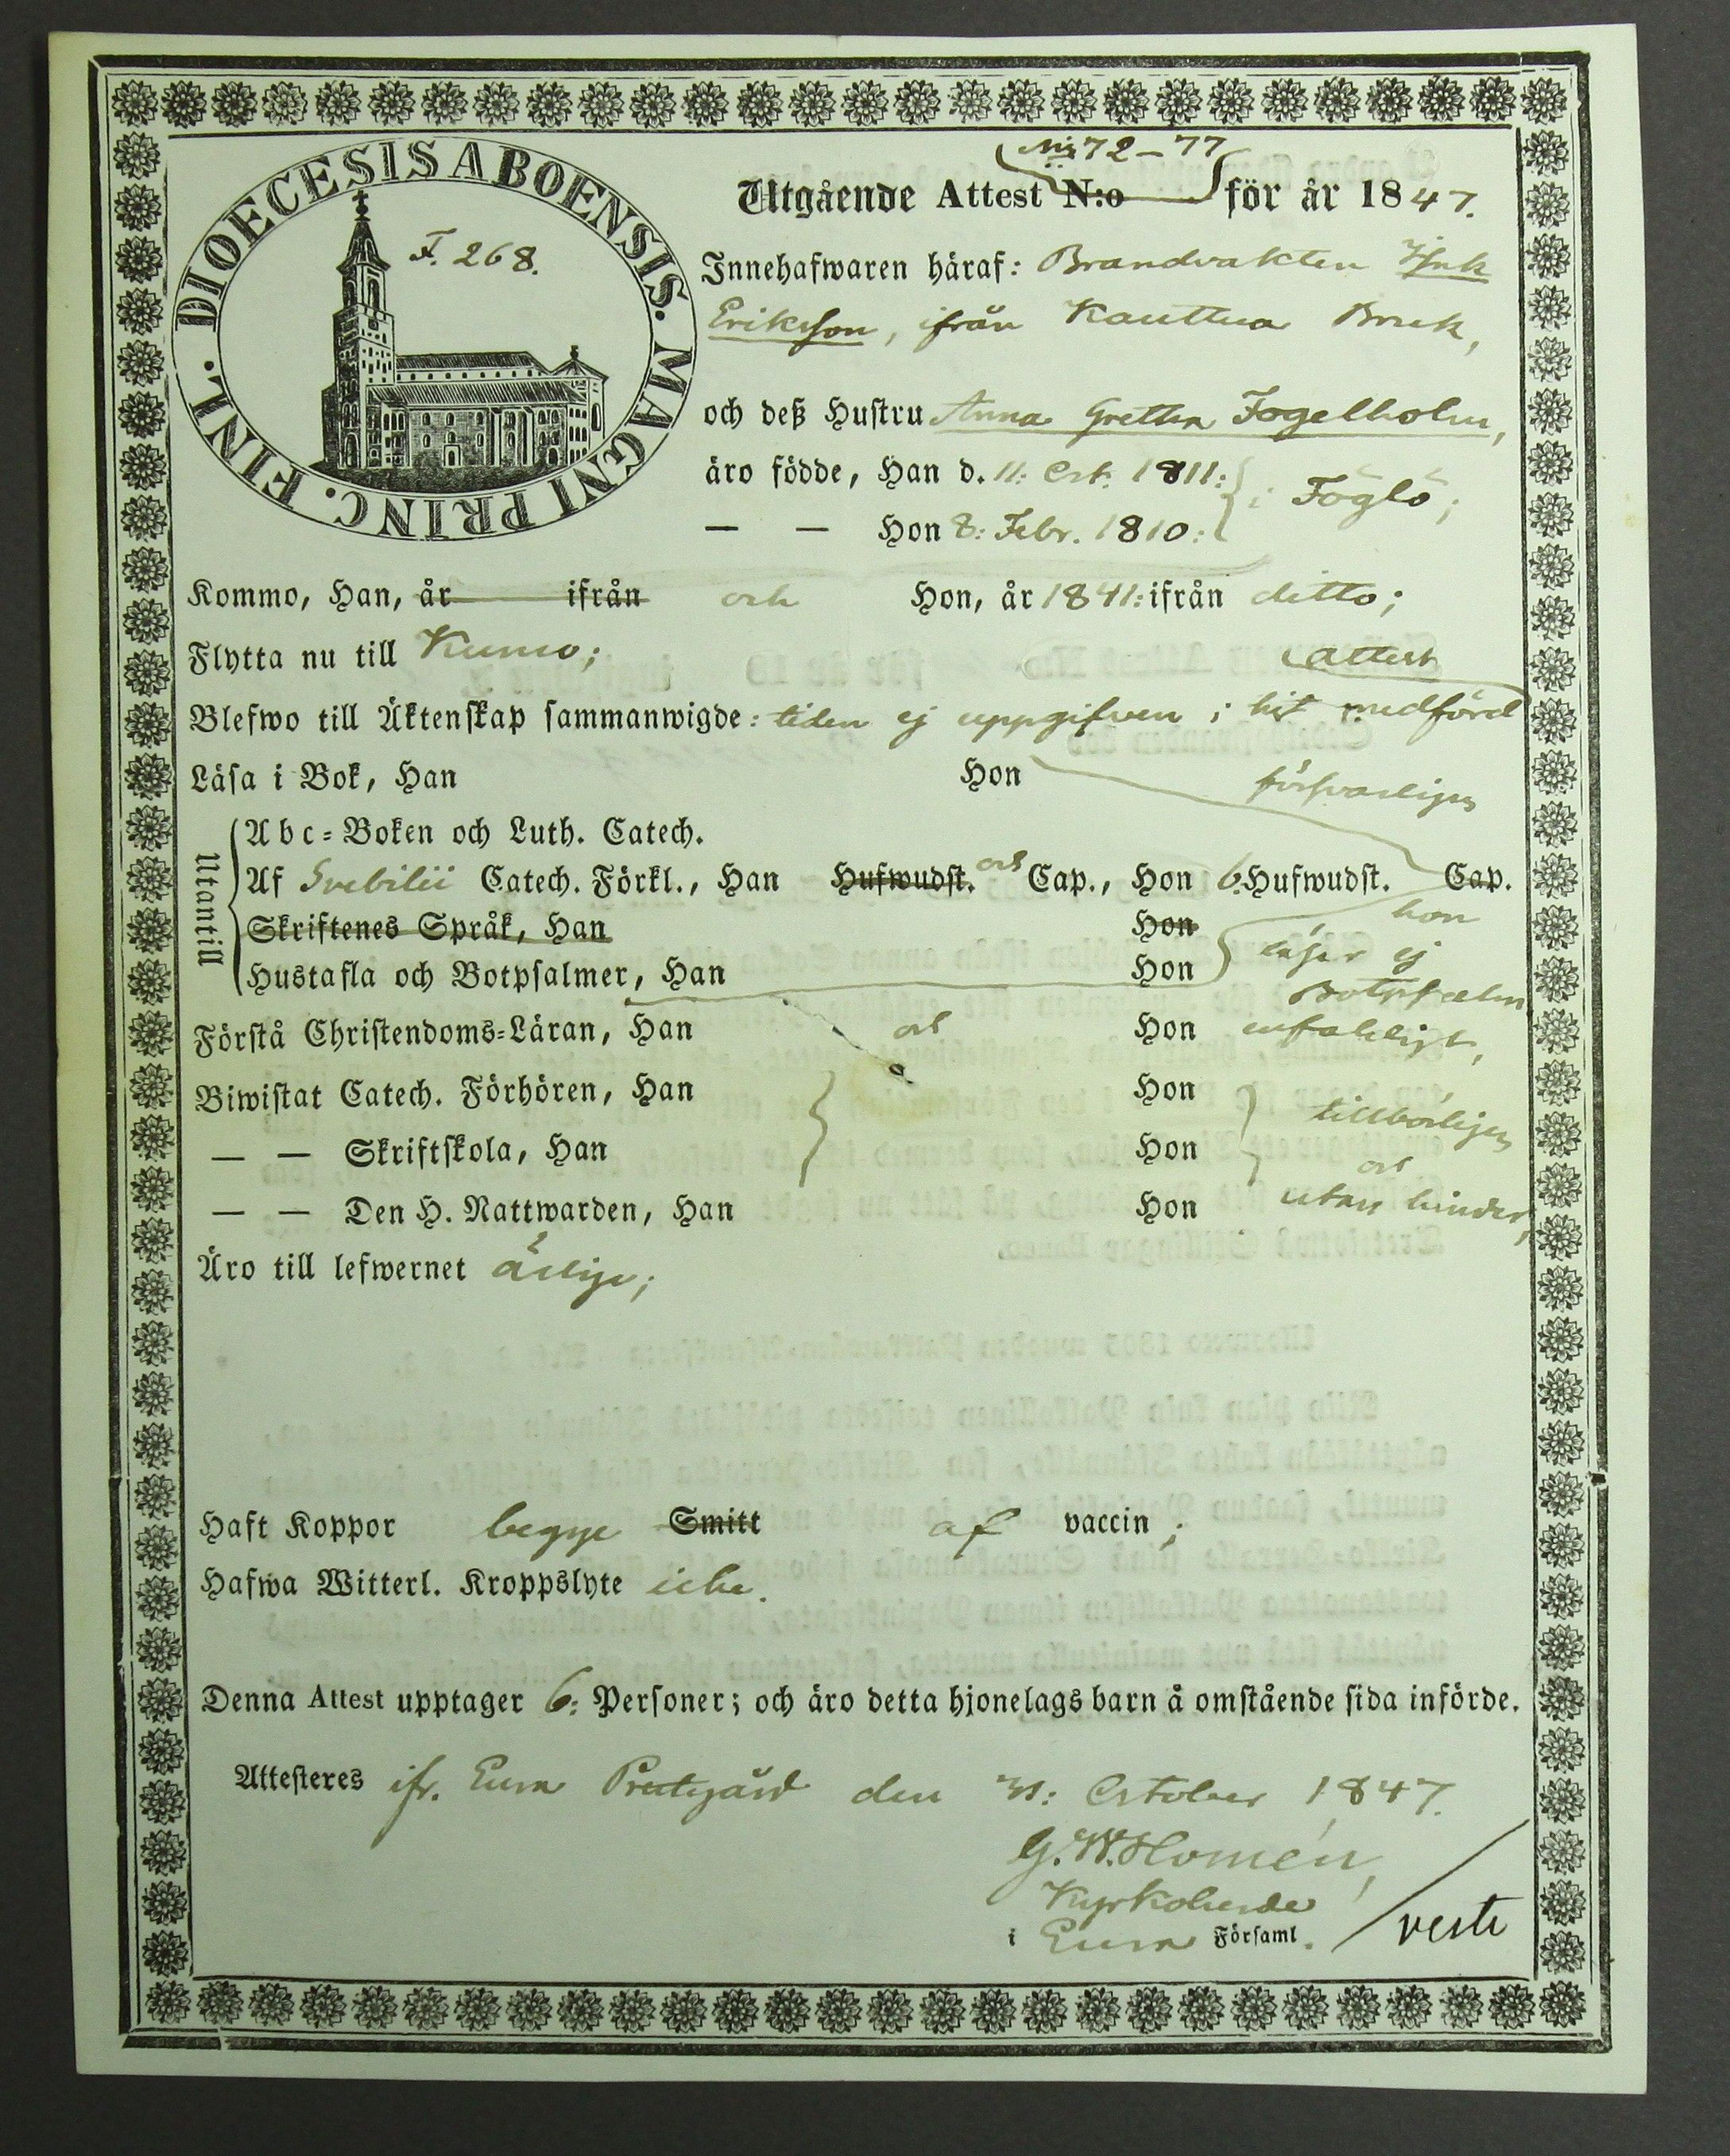 DIOECESIS ABOENSIS. MAGNI PRINC. FINL.
F. 268.
N:ris 72–77
Utgående Attest N:o för år 1847.
Innehafwaren häraf: Brandvakten
Eriksson, ifrån Kauttua Bruk,
och deß Hustru Anna Gretha Fogelholm,
äro födde, Han d. 11: Oct. 1811: i Föglö;
— — Hon 8: Febr. 1810:
Kommo, Han, år ifrån och Hon, år 1841: ifrån ditto;
Flytta nu till Kumo; attest
Blefwo till Äktenskap sammanwigde: tiden ej uppgifven i hit medförd
Läsa i Bok, Han Hon försvarligen
Utantill
Abc-Boken och Luth. Catech.
Af Svebilii Catech. Förkl., Han Hufwudst. och Cap., Hon 6. Hufwudst. Cap.
Skriftenes Språk, Han Hon hon
Hustafla och Botpsalmer, Han Hon läser ej
Botpsalm
Förstå Christendoms-Läran, Han och Hon enfaldigt,
Biwistat Catech. Förhören, Han Hon tillbörligen
— — Skriftskola, Han Hon och
— — Den H. Nattwarden, Han Hon utan hinder,
Äro till lefwernet ärlige;
Haft Koppor begge Smitt af vaccin;
Hafwa Witterl. Kroppslyte icke.
Denna Attest upptager 6: Personer; och äro detta hjonelags barn å omstående sida införde.
Attesteres ifr. Eura Prestgård den 31: October 1847.
G. W. Homén,
Kyrkoherde
i Eura Församl.
verte